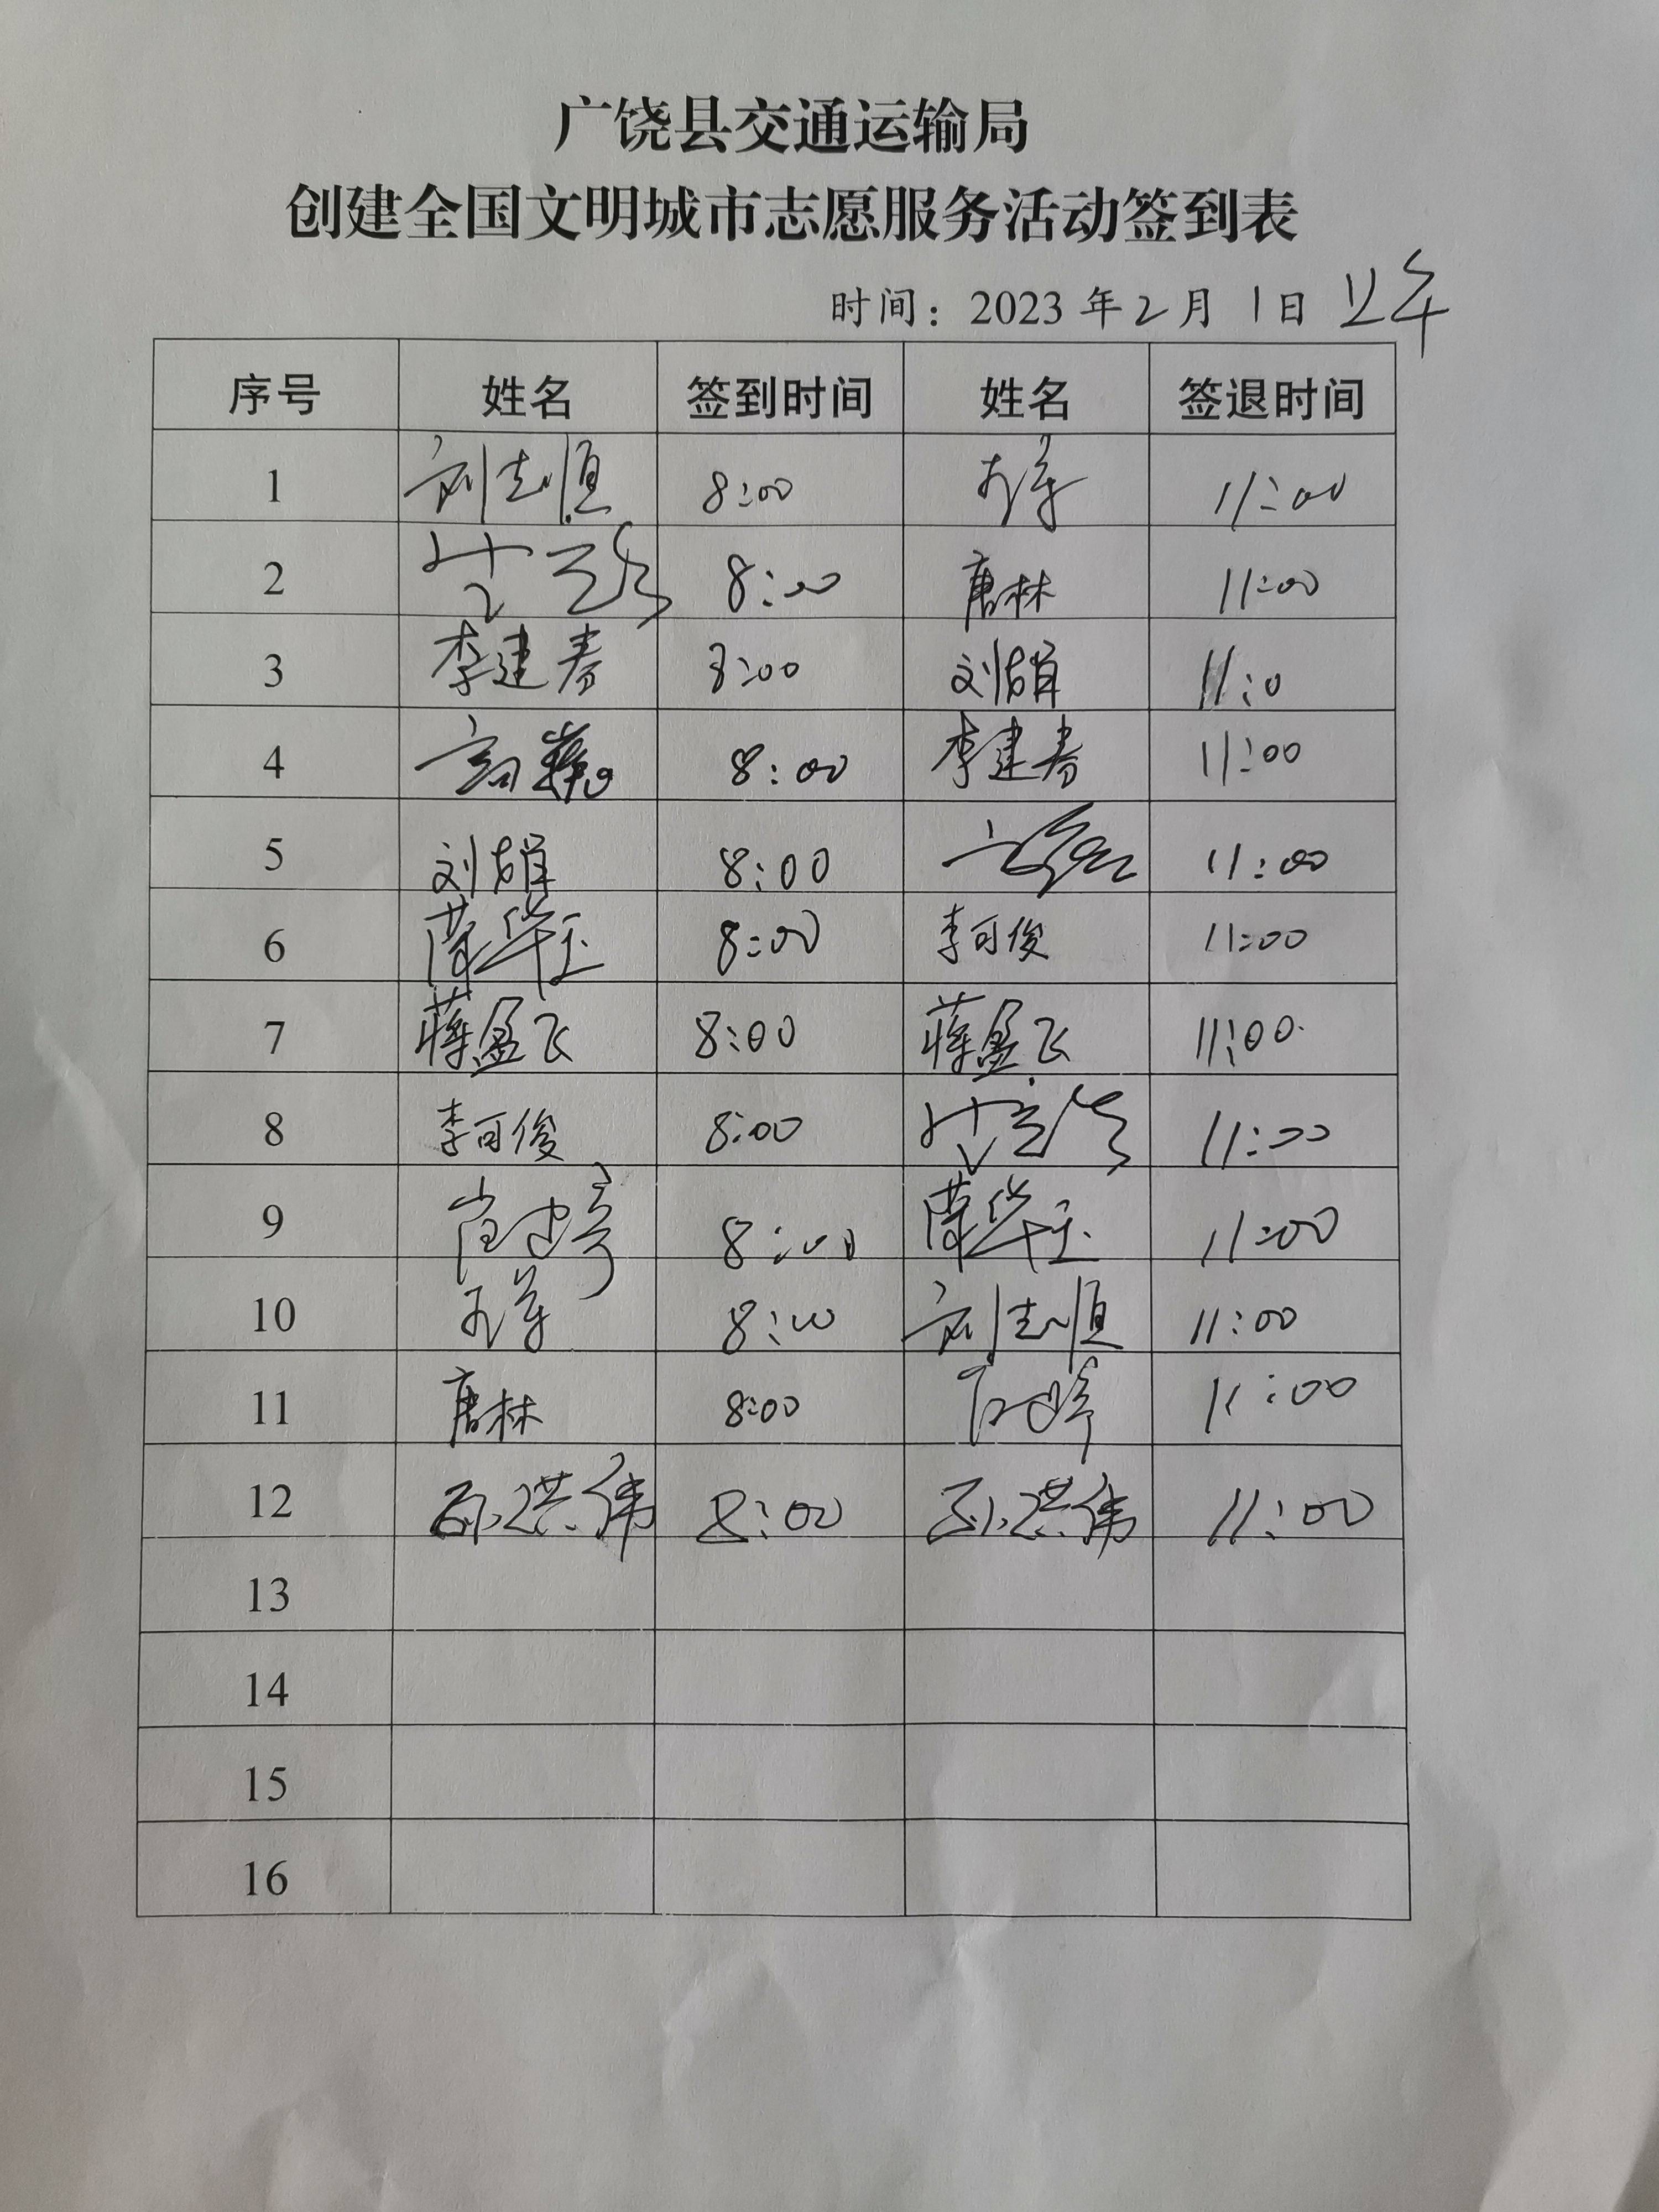 广饶县交通运输局
创建全国文明城市志愿服务活动签到表
时间：2023年2月1日 上午
序号 姓名 签到时间 姓名 签退时间
1 刘志恒 8:00 11:00
2 8:00 唐林 11:00
3 李建春 8:00 刘婧 11:0
4 8:00 李建春 11:00
5 刘婧 8:00 11:00
6 8:00 李可俊 11:00
7 蒋盈飞 8:00 蒋盈飞 11:00
8 李可俊 8:00 11:00
9 8:00 11:00
10 8:00 刘志恒 11:00
11 唐林 8:00 11:00
12 孙洪伟 8:00 孙洪伟 11:00
13
14
15
16